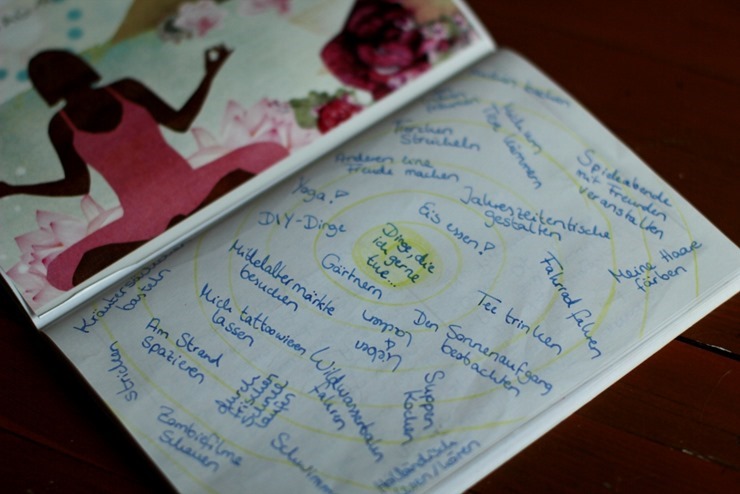 Dinge, die
ich gerne
tue...
Kuchen backen
Mich um
Tiere kümmern
Spieleabende
mit Freunden
veranstalten
Meine Haare
färben
Streicheln
Anderen eine
Freude machen
Jahreszeitentische
gestalten
Yoga!
Eis essen!
DIY-Dinge
Gärtnern
Fahrrad fahren
Tee trinken
Mittelaltermärkte
besuchen
Den Sonnenaufgang
beobachten
basteln
Mich tattoowieren
lassen
Am Strand
spazieren
Wildwasserbahn
fahren
Suppen
kochen
stricken
durch
frischen
Zombiefilme
schauen
Holländisch